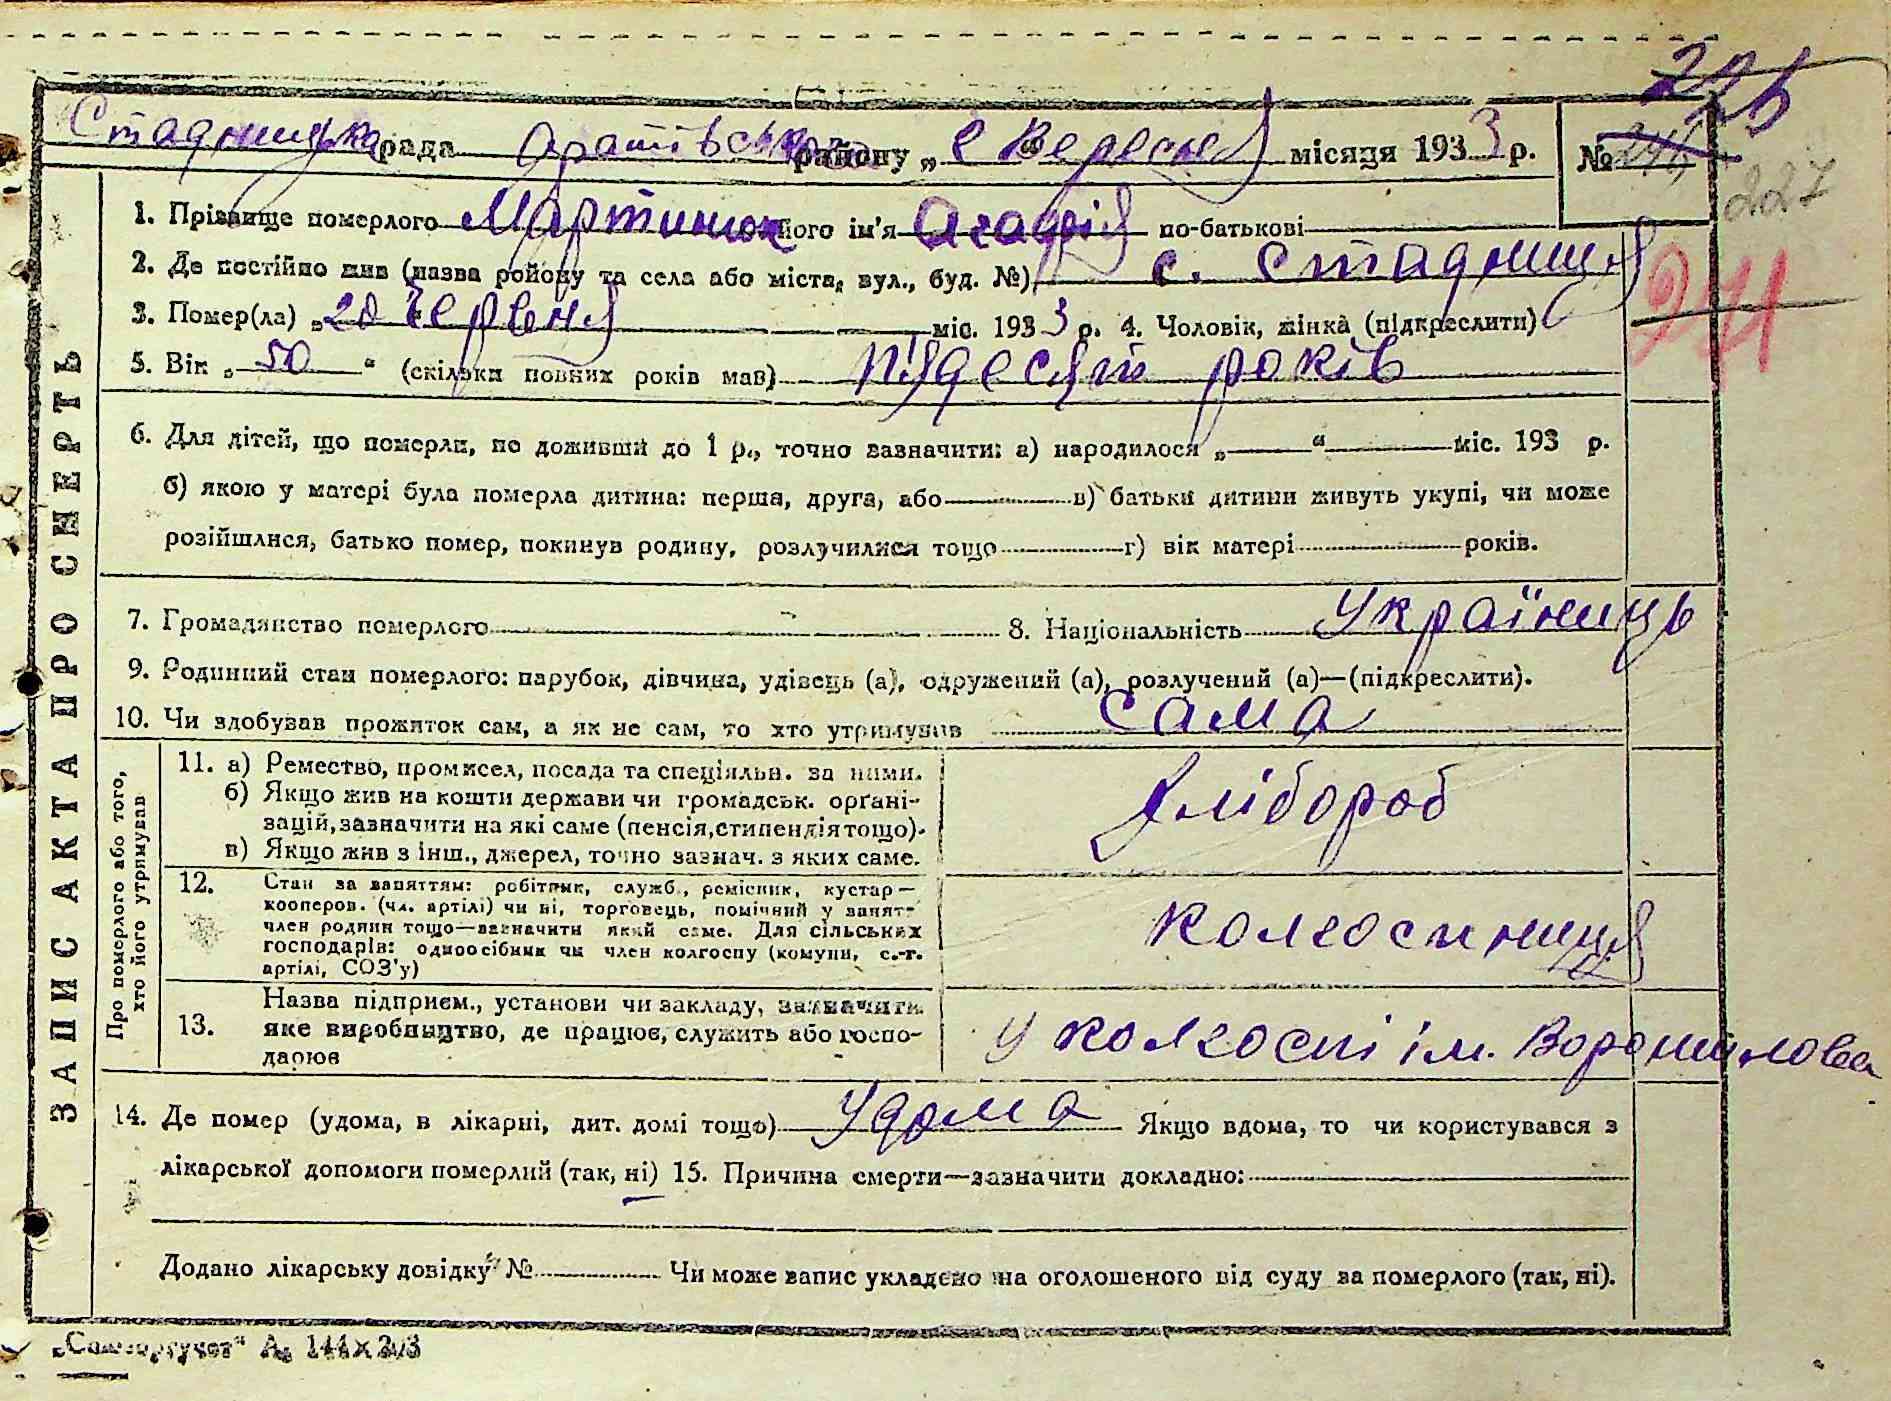 226
Стадницька рада Оратівського району „ Вересня місяця 1933 р. № 246
227
1. Прізвище померлого Мартинюк його ім'я Агафія по-батькові
2. Де постійно жив (назва району та села або міста, вул., буд. №) с. Стадниця
271
3. Помер(ла) „20 Червня міс. 1933 р. 4. Чоловік, жінка (підкреслити)
5. Вік „ 50 “ (скільки повних років мав) пядесят років
6. Для дітей, що померли, не доживши до 1 р., точно зазначити: а) народилося „ “ міс. 193 р.
б) якою у матері була померла дитина: перша, друга, або в) батьки дитини живуть укупі, чи може
розійшлися, батько помер, покинув родину, розлучилися тощо г) вік матері років.
7. Громадянство померлого 8. Національність Українець
9. Родинний стан померлого: парубок, дівчина, удівець (а), одружений (а), розлучений (а)—(підкреслити).
10. Чи здобував прожиток сам, а як не сам, то хто утримував сама
ЗАПИС АКТА ПРО СМЕРТЬ
Про померлого або того,
хто його утримував
11. а) Ремество, промисел, посада та спеціяльн. за ними.
б) Якщо жив на кошти держави чи громадськ. орґані-
зацій, зазначити на які саме (пенсія, стипендія тощо).
в) Якщо жив з інш., джерел, точно зазнач. з яких саме.
Хлібороб
12. Стан за заняттям: робітник, служб., ремісник, кустар—
кооперов. (чл. артілі) чи ні, торговець, помічний у занят-
член родини тощо—зазначити який саме. Для сільських
господарів: одноосібник чи член колгоспу (комуни, с.-г.
артілі, СОЗ'у)
колгоспниця
13. Назва підприєм., установи чи закладу, зазначити
яке виробництво, де працює, служить або госпо-
дарює
у колгоспі ім. Ворошилова
14. Де помер (удома, в лікарні, дит. домі тощо) Удома Якщо вдома, то чи користувався з
лікарської допомоги померлий (так, ні) 15. Причина смерти—зазначити докладно:
Додано лікарську довідку № Чи може запис укладено на оголошеного від суду за померлого (так, ні).
А₅ 144×2/3